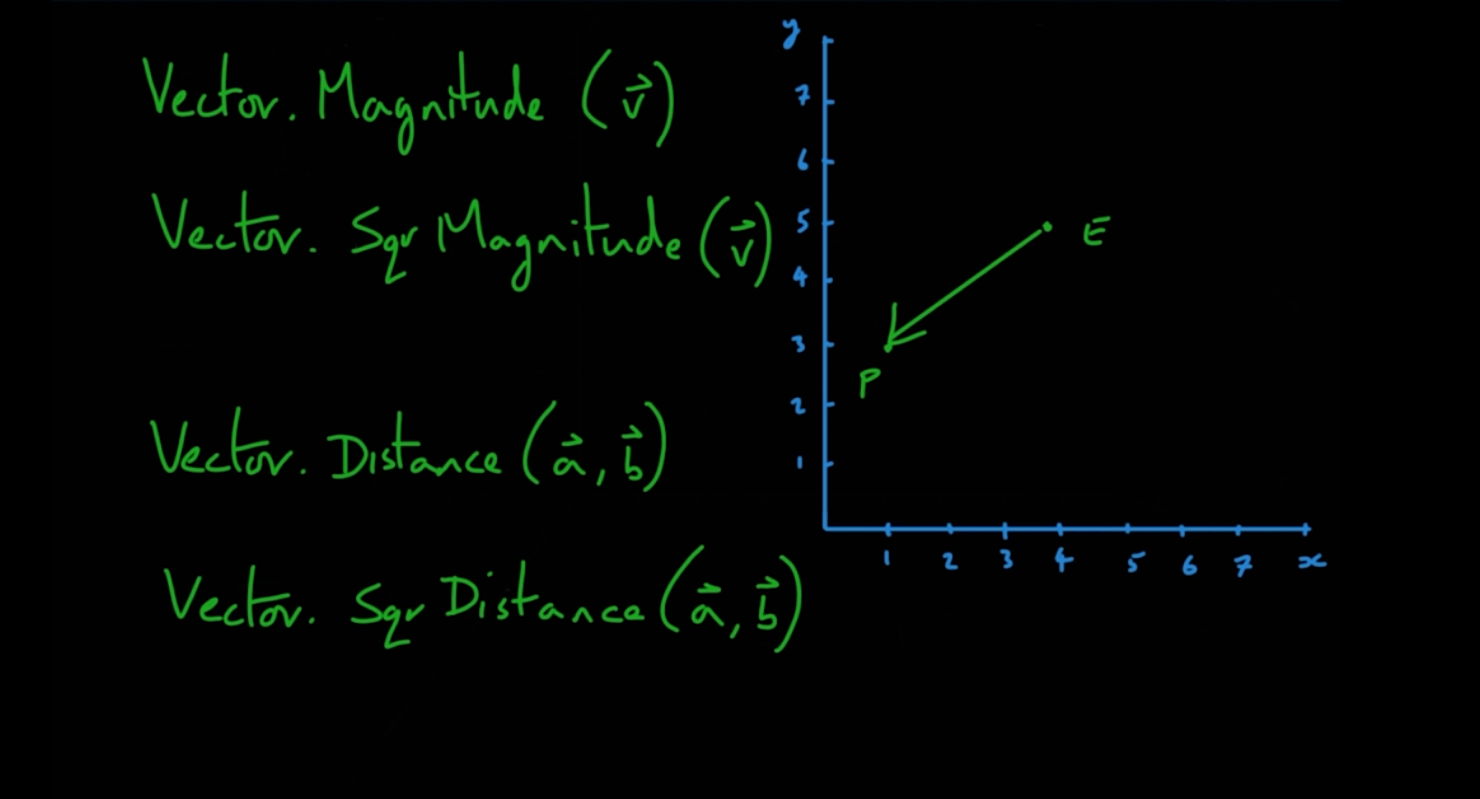 Vector. Magnitude (v⃗)
Vector. Sqr Magnitude (v⃗)
Vector. Distance (a⃗, b⃗)
Vector. Sqr Distance (a⃗, b⃗)
y
7
6
5
4
3
2
1
E
P
1 2 3 4 5 6 7 x